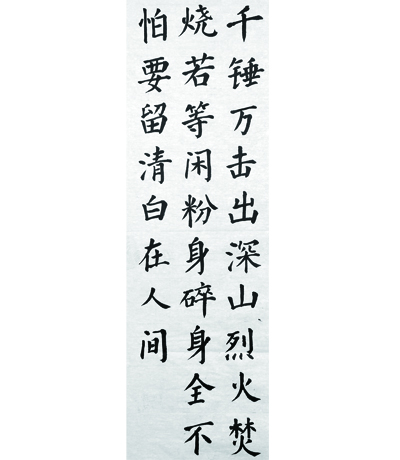 千锤万击出深山烈火焚
烧若等闲粉身碎身全不
怕要留清白在人间